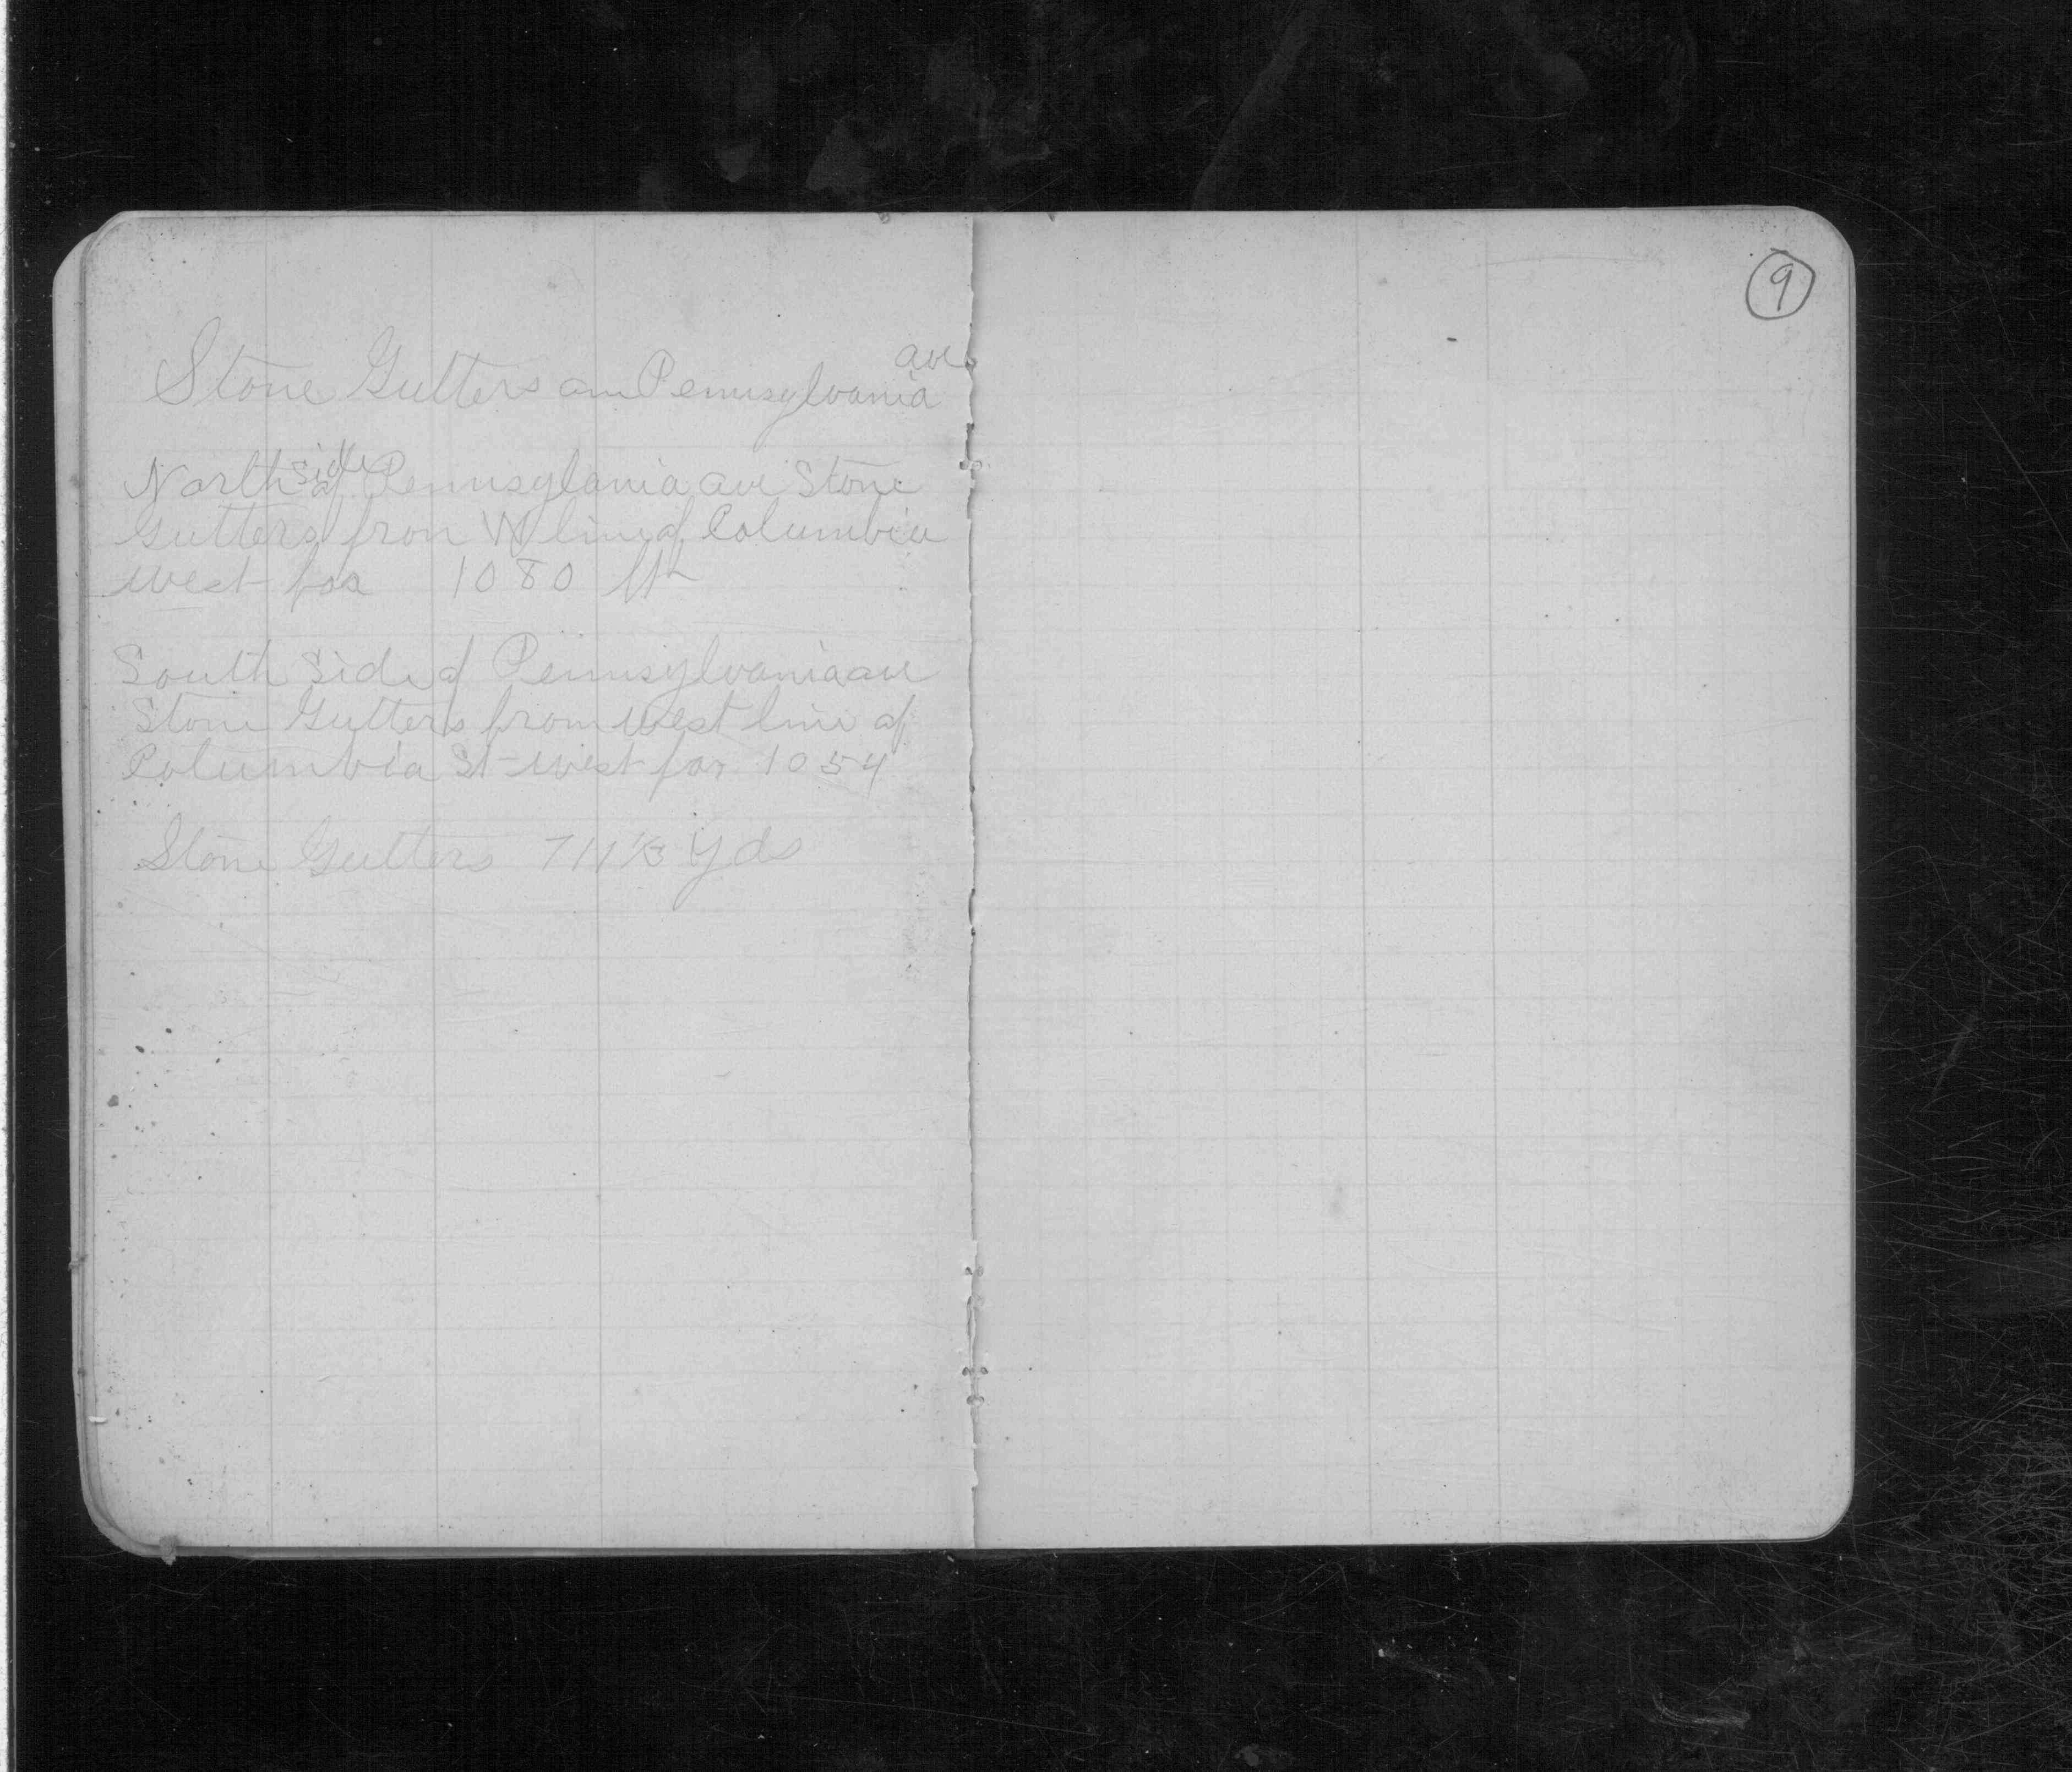 Stone Gutters on Pennsylvania ave
North side of Pennsylania ave Stone
Gutters fron W line of Columbia
west for 1080 ft
South Side of Pennsylvania ave
Stone Gutters from west line of
Columbia St west for 1054
Stone Gutters 711 1/3 Yds
9